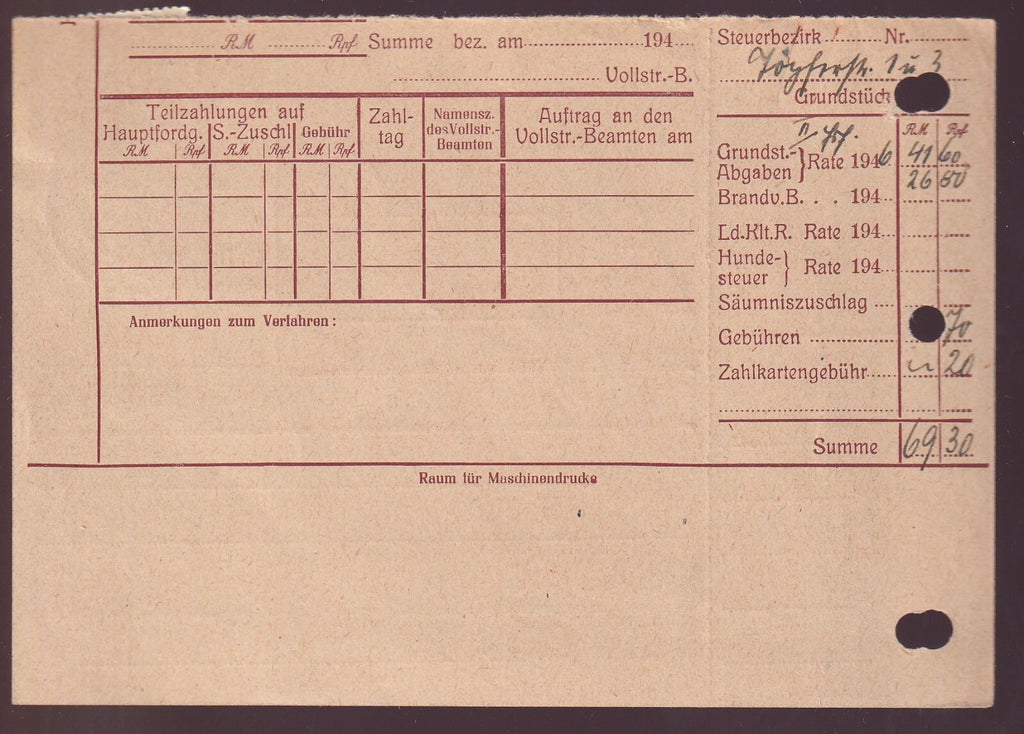 RM Rpf Summe bez. am 194
Vollstr.-B.
Teilzahlungen auf
Hauptfordg. S.-Zuschl Gebühr
RM Rpf RM Rpf RM Rpf
Zahl-
tag
Namensz.
des Vollstr.-
Beamten
Auftrag an den
Vollstr.-Beamten am
Anmerkungen zum Verfahren:
Steuerbezirk Nr.
Töpferstr. 1 u 3
Grundstück
RM Rpf
Grundst.-
Abgaben } Rate 1946 41 60
26 80
Brandv.B. . . . 194
Ld.Klt.R. Rate 194
Hunde-
steuer } Rate 194
Säumniszuschlag
Gebühren 70
Zahlkartengebühr 20
Summe 69 30
Raum für Maschinendrucke